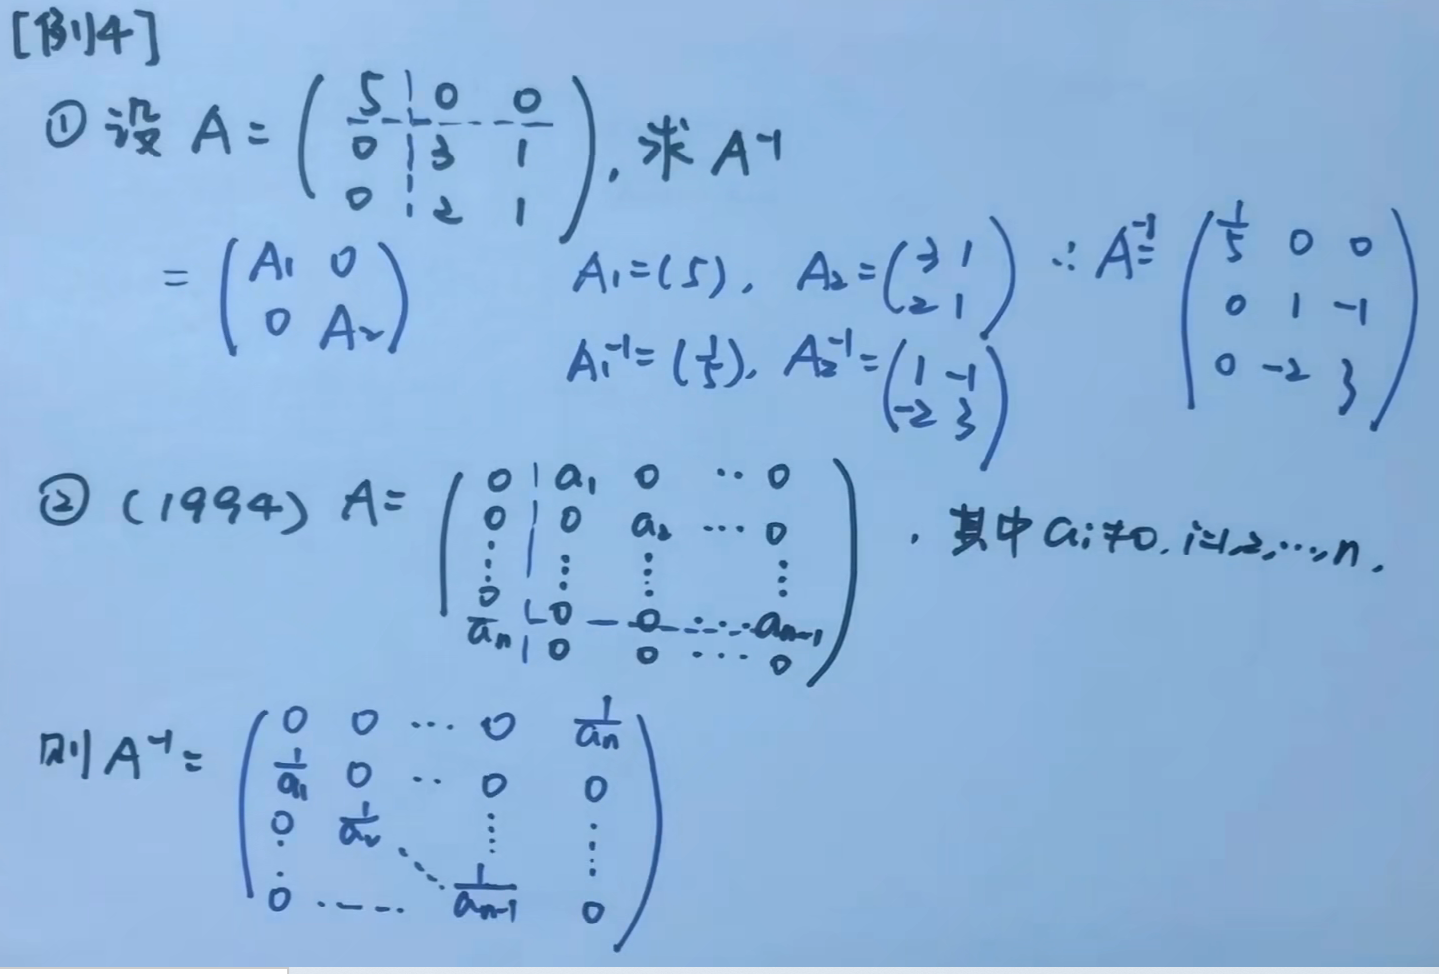 [例4]
① 设 A = ( 5 0 0 ; 0 3 1 ; 0 2 1 ) . 求 A⁻¹
= ( A₁ 0 ; 0 A₂ )  A₁=(5), A₂=( 3 1 ; 2 1 ) ∴ A⁻¹= ( 1/5 0 0 ; 0 1 -1 ; 0 -2 3 )
A₁⁻¹=(1/5), A₂⁻¹=( 1 -1 ; -2 3 )
② (1994) A= ( 0 a₁ 0 ‥ 0 ; 0 0 a₂ … 0 ; ⋮ ⋮ ⋮ ⋮ ; 0 0 0 … aₙ₋₁ ; aₙ 0 0 … 0 ) . 其中 aᵢ≠0. i=1,2,…,n.
则 A⁻¹= ( 0 0 … 0 1/aₙ ; 1/a₁ 0 ‥ 0 0 ; 0 1/a₂ ⋱ ⋮ ⋮ ; 0 … 1/aₙ₋₁ 0 )